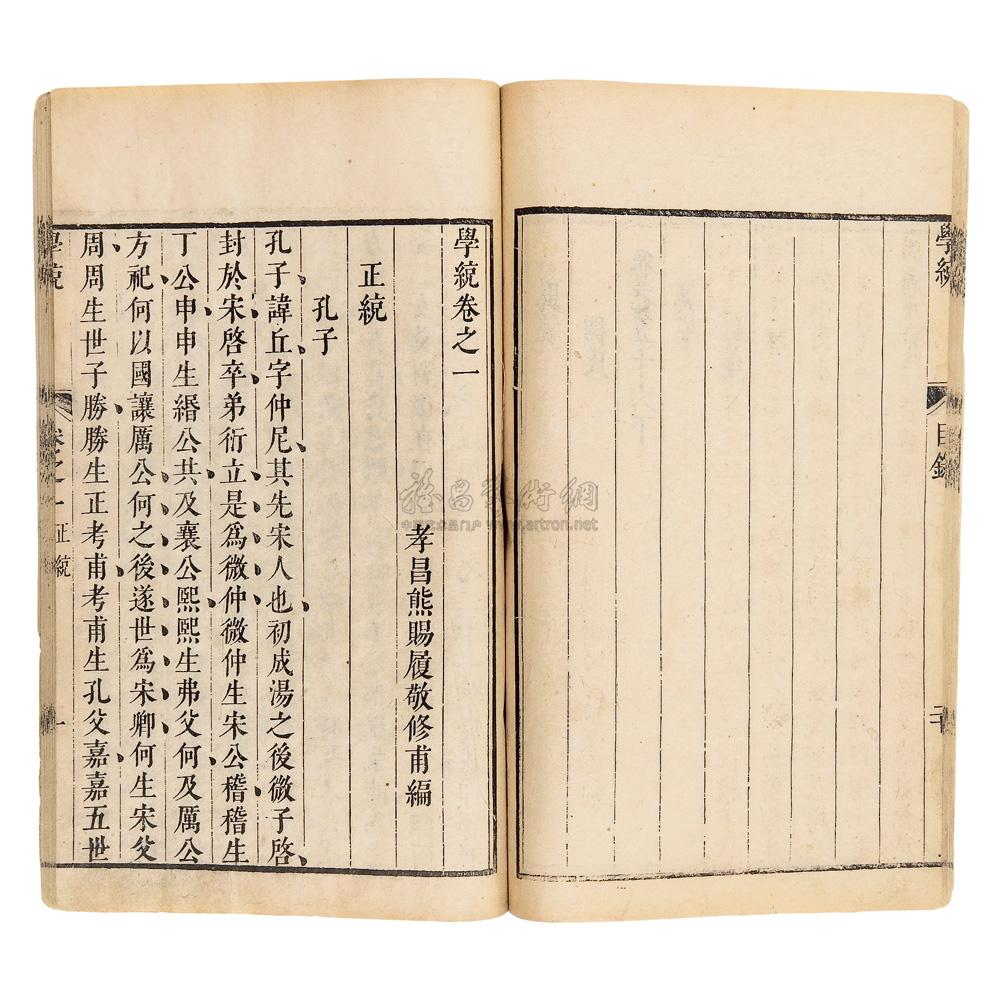 學統
目錄
學統卷之一
孝昌熊賜履敬修甫編
正統
孔子
孔子諱丘字仲尼其先宋人也初成湯之後微子啓
封於宋啓卒弟衍立是爲微仲微仲生宋公稽稽生
丁公申申生緡公共及襄公熙熙生弗父何及厲公
方祀何以國讓厲公何之後遂世爲宋卿何生宋父
周周生世子勝勝生正考甫考甫生孔父嘉嘉五世
學統
卷之一
正統
一
雅昌藝術網
www.artron.net